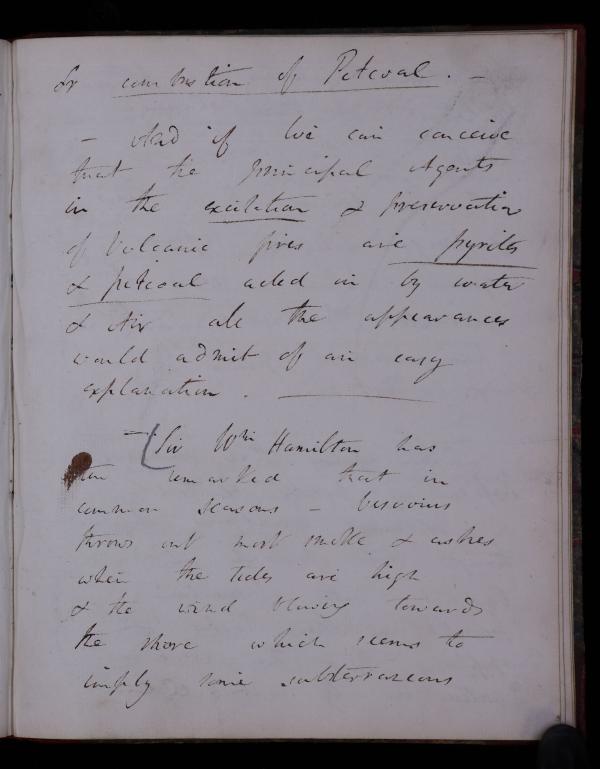 or combustion of Pitcoal. —
— And if we can conceive
that the principal Agents
in the excitation & preservation
of Volcanic fires are pyrites
& pitcoal acted on by water
& Air all the appearances
would admit of an easy
explanation. —
— (Sir Wm Hamilton has
remarked that in
common seasons – Vesuvius
throws out most smoke & ashes
when the tides are high
& the wind blowing towards
the shore which seems to
imply some subterraneous